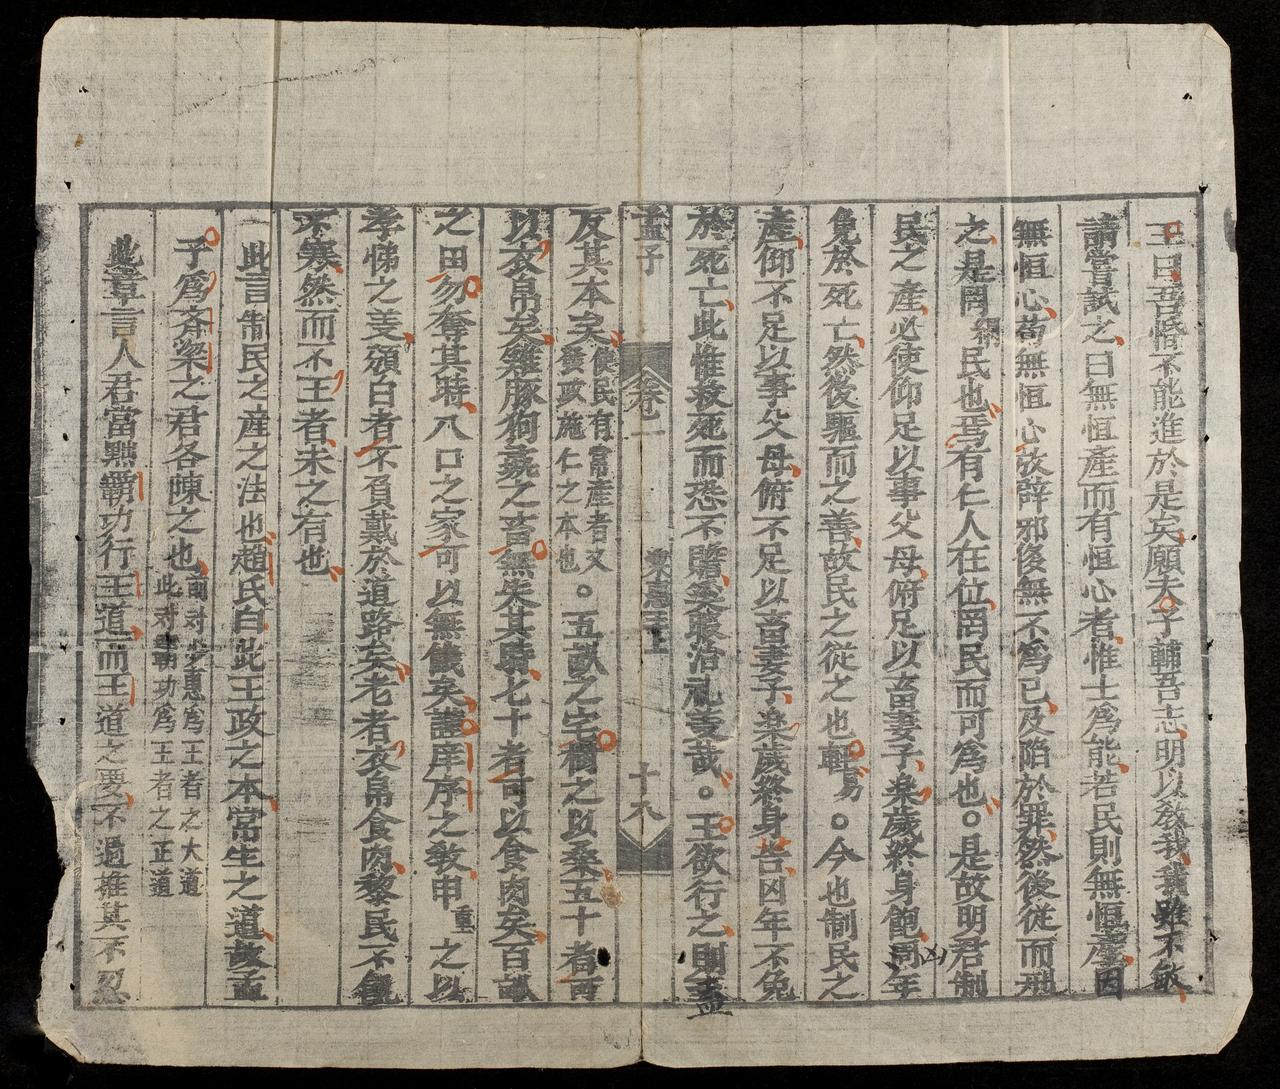 王曰吾惛不能進於是矣願夫子輔吾志明以教我我雖不敏
請嘗試之曰無恒產而有恒心者惟士爲能若民則無恒產因
無恒心苟無恒心放辟邪侈無不爲已及陷於罪然後從而刑
之是罔網民也焉有仁人在位罔民而可爲也○是故明君制
民之產必使仰足以事父母俯足以畜妻子楽歲終身飽凶年
免於死亡然後驅而之善故民之從之也輕易○今也制民之
產仰不足以事父母俯不足以畜妻子楽歲終身苦凶年不免
於死亡此惟救死而恐不贍奚暇治礼義哉○王欲行之則盍
孟子
卷一
梁惠王上
十八
反其本矣使民有常產者又
發政施仁之本也○五畝之宅樹之以桑五十者可
以衣帛矣雞豚狗彘之畜無失其時七十者可以食肉矣百畝
之田勿奪其時八口之家可以無饑矣謹庠序之教申重之以
孝悌之義頒白者不負戴於道路矣老者衣帛食肉黎民不飢
不寒然而不王者未之有也
此言制民之產之法也趙氏曰此王政之本常生之道故孟
子爲斉梁之君各陳之也前对少惠爲王者之大道
此对霸功爲王者之正道
此章言人君當黜霸功行王道而王道之要不過推其不忍